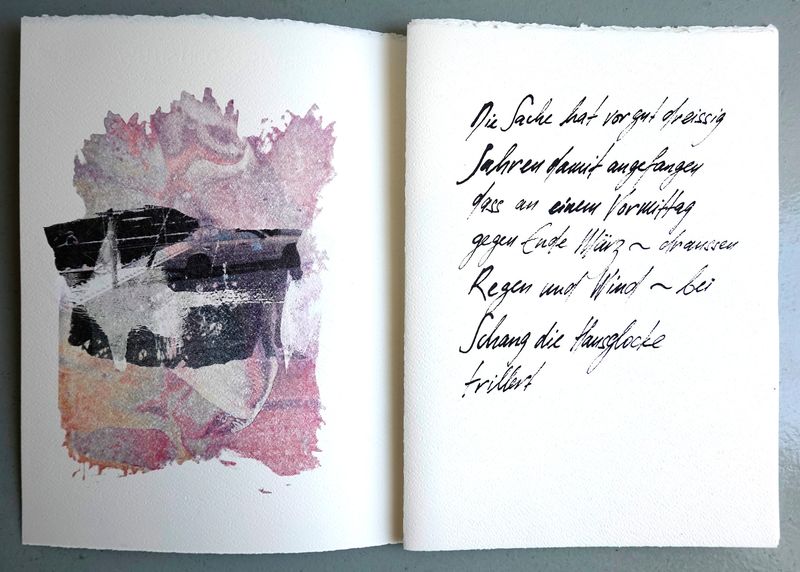 Die Sache hat vor gut dreissig
Jahren damit angefangen
dass an einem Vormittag
gegen Ende März ~ draussen
Regen und Wind ~ bei
Schang die Hausglocke
trillert